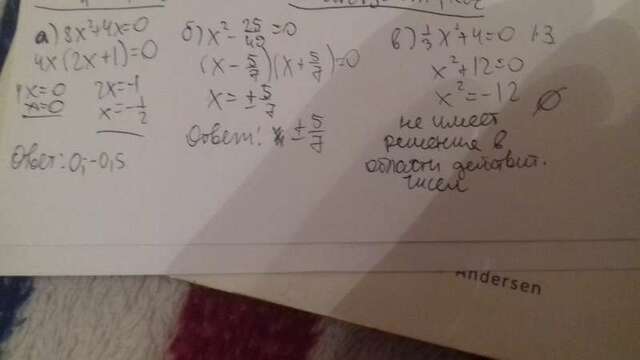 а) 8x²+4x=0
4x(2x+1)=0
4x=0 2x=-1
x=0 x=-1/2
Ответ: 0; -0,5
б) x²-25/49=0
(x-5/7)(x+5/7)=0
x=±5/7
Ответ: ±5/7
в) 1/3x²+4=0 |·3
x²+12=0
x²=-12 ∅
не имеет
решения в
области действит.
чисел
Andersen